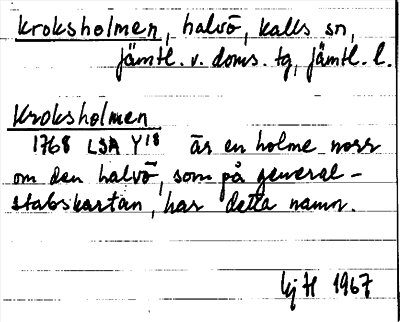 Kroksholmen, halvö, Kalls sn,
Jämtl. v. doms. tg, Jämtl. l.
Kroksholmen
1768 LSA Y18 är en holme norr
om den halvö, som på general-
stabskartan, har detta namn.
1967